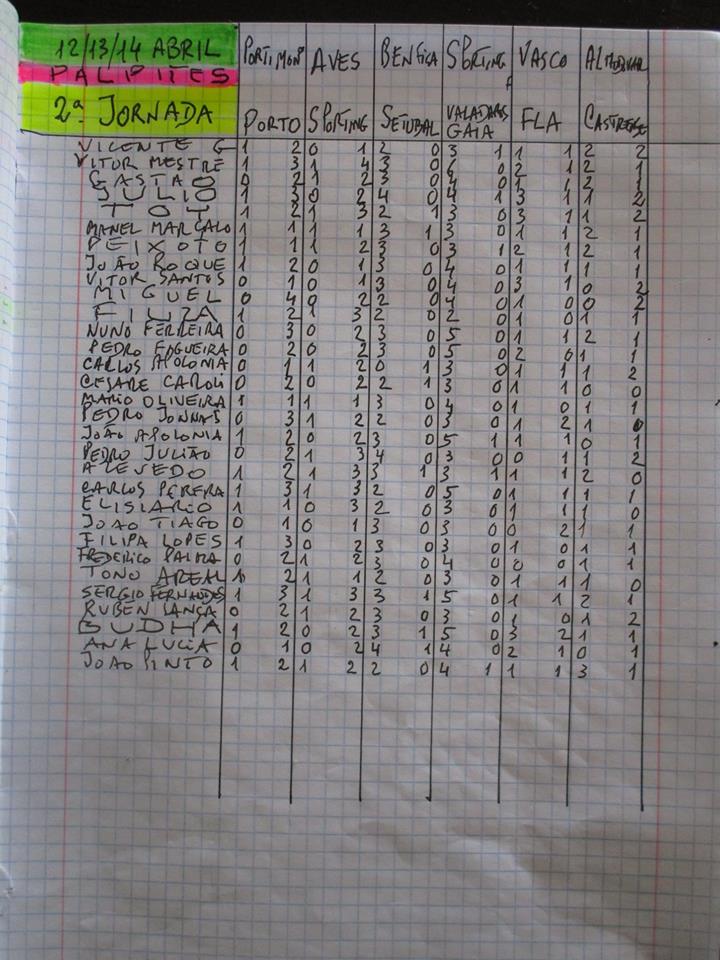 12/13/14 ABRIL PORTIMON AVES BENFICA SPORTING F VASCO ALMODOVAR
PALPITES
2ª JORNADA PORTO SPORTING SETUBAL VALADARES GAIA FLA CASTRENSE
VICENTE G 1 2 0 1 2 0 3 1 1 1 2 2
VITOR MESTRE 1 3 1 4 3 0 2 1 2 1
GASTAO 0 2 1 2 3 0 4 0 1 1 2 1
JULIO 1 3 0 2 4 0 4 1 3 1 1 2
TOY 1 2 1 3 2 1 3 0 3 1 1 2
MANEL MARÇALO 1 1 1 1 3 1 3 0 1 1 2 1
PEIXOTO 1 1 1 2 3 0 3 1 2 1 2 1
JOÃO ROQUE 1 2 0 1 3 0 4 0 1 1 1 1
VITOR SANTOS 0 1 0 1 3 0 4 0 3 1 0 2
MIGUEL 0 4 0 2 2 0 4 0 1 0 0 2
FIUZA 1 2 1 3 2 0 2 0 1 0 1 1
NUNO FERREIRA 0 3 0 2 3 0 5 0 1 1 2 1
PEDRO FOGUEIRA 0 2 0 2 3 0 5 0 2 0 1 1
CARLOS APOLONIA 0 1 1 2 0 1 3 0 1 1 1 2
CESARE CAROLI 0 2 0 2 2 1 3 0 1 1 0 0
MARIO OLIVEIRA 1 1 1 1 3 0 4 0 1 0 1 1
PEDRO JONNAS 0 3 1 2 2 0 3 0 1 2 1 0
JOÃO APOLONIA 1 2 0 2 3 0 5 1 1 1 0 1
PEDRO JULIÃO 0 2 1 3 4 0 3 0 0 1 1 2
AZEVEDO 1 2 1 3 3 1 3 1 1 1 2 0
CARLOS PEREIRA 1 3 1 3 2 0 5 0 1 1 1 1
ELISIARIO 1 1 0 3 2 0 3 0 1 1 1 0
JOAO TIAGO 0 1 0 1 3 0 3 0 0 2 1 1
FILIPA LOPES 1 3 0 2 3 0 3 0 1 0 1 1
FREDERICO PALMA 0 2 1 2 3 0 4 0 0 0 1 1
TONO AREAL 1 2 1 1 2 0 3 0 1 1 1 0
SERGIO FERNANDES 1 3 1 3 3 1 5 0 1 1 2 1
RUBEN LANÇA 0 2 1 2 3 0 3 0 1 0 1 2
BUDHA 1 2 0 2 3 1 5 0 3 2 1 1
ANA LUCIA 0 1 0 2 4 1 4 0 2 1 0 1
JOAO PINTO 1 2 1 2 2 0 4 1 1 1 3 1